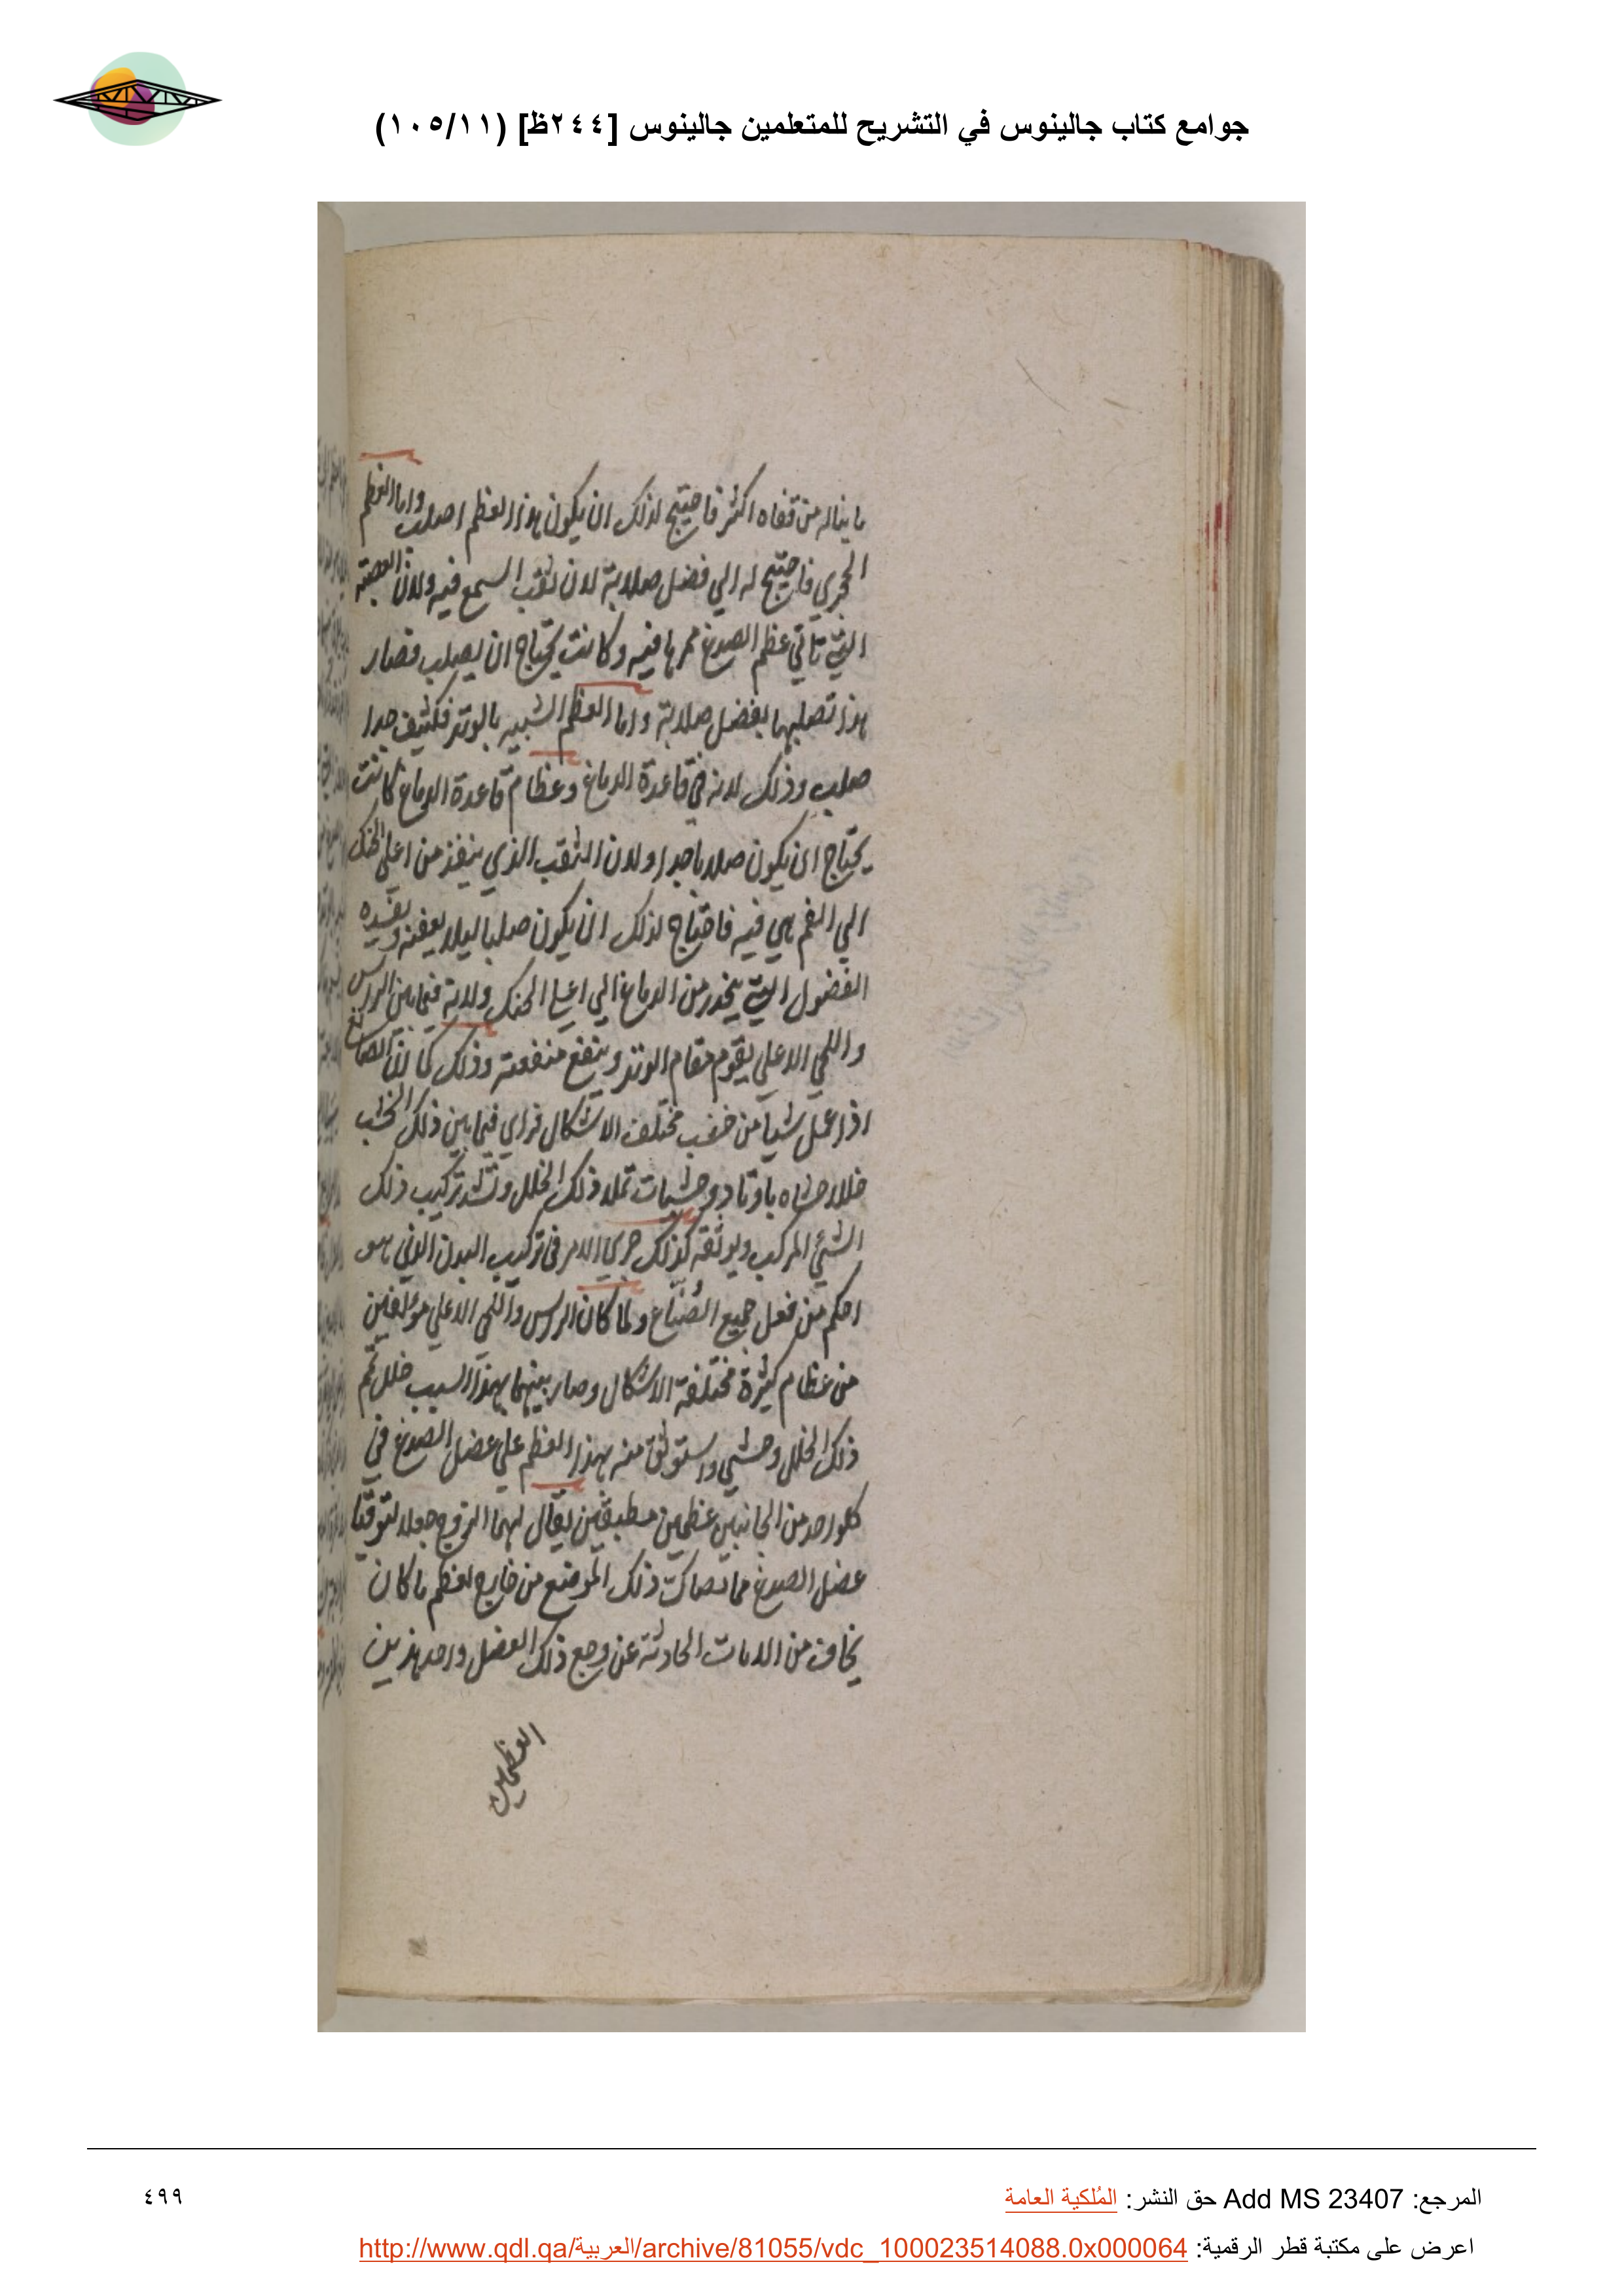 جوامع كتاب جالينوس في التشريح للمتعلمين جالينوس [٢٤٤ظ] (١٠٥/١١)
ما يناله من قفاه اكثر فاحتيج لذلك ان يكون هذا العظم اصلب واما العظم
الحجري فاحتيج له الي فضل صلابة لان ثقب السمع فيه ولان العصبة
التي تاتي عظم الصدغ ممرها فيه وكانت تحتاج ان يصلب فصار
هذا تصلبها بفضل صلابة واما العظم الشبيه بالوتد فكثيف جدا
صلب وذلك لانه في قاعدة الدماغ وعظام قاعدة الدماغ كانت
يحتاج ان يكون صلابا جدا ولان الثقب الذي ينفذ من اعلي الحنك
الي الفم هي فيه فاحتاج لذلك ان يكون صلبا ليلا يعفنه ويفسده
الفضول التي ينحدر من الدماغ الي اعلي الحنك ولانه فيما بين الراس
واللحي الاعلي يقوم مقام الوتد وينفع منفعته وذلك كما ان الصانع
اذا عمل شيا من خشب مختلف الاشكال فراي فيما بين ذلك الخشب
خللا حشاه باوتاد وخشبات تملا ذلك الخلل وتشد تركيب ذلك
الشئ المركب ويوثقه كذلك جري الامر في تركيب البدن الذي هو
احكم من فعل جميع الصُنّاع ولما كان الراس واللحي الاعلي مؤلفين
من عظام كثيرة مختلفة الاشكال وصار بينهما بهذا السبب خلل
ذلك الخلل وحشي واستوثق منه بهذا العظم علي عضل الصدغ في
كلواحد من الجانبين عظمين مطبقين يقال لهما الزوج جعلا لتوقيا
عضل الصدغ مما تصاك ذلك الموضع من خارج لعظم ما كان
يخاف من الافات الحادثة عن وجع ذلك العضل واحد هذين
العظمين
المرجع: Add MS 23407 حق النشر: المُلكية العامة
٤٩٩
اعرض على مكتبة قطر الرقمية: http://www.qdl.qa/العربية/archive/81055/vdc_100023514088.0x000064